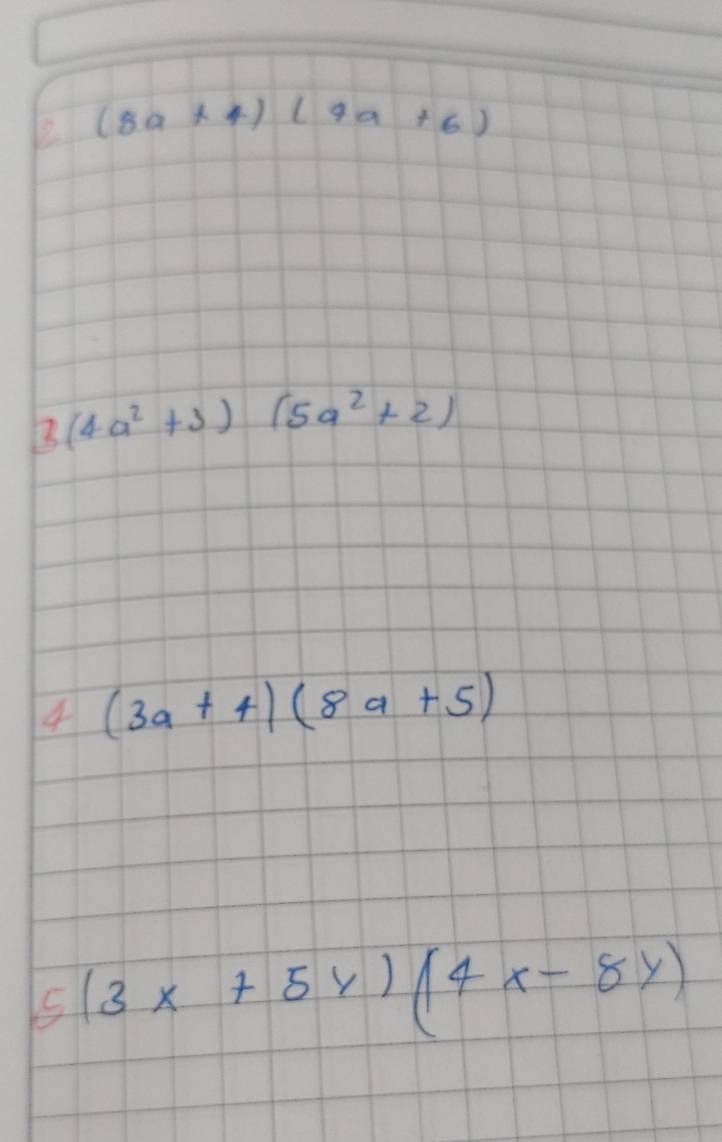 2 (8a + 4) (9a + 6)
3 (4a² + 3) (5a² + 2)
4 (3a + 4) (8a + 5)
5 (3x + 5y) (4x - 8y)